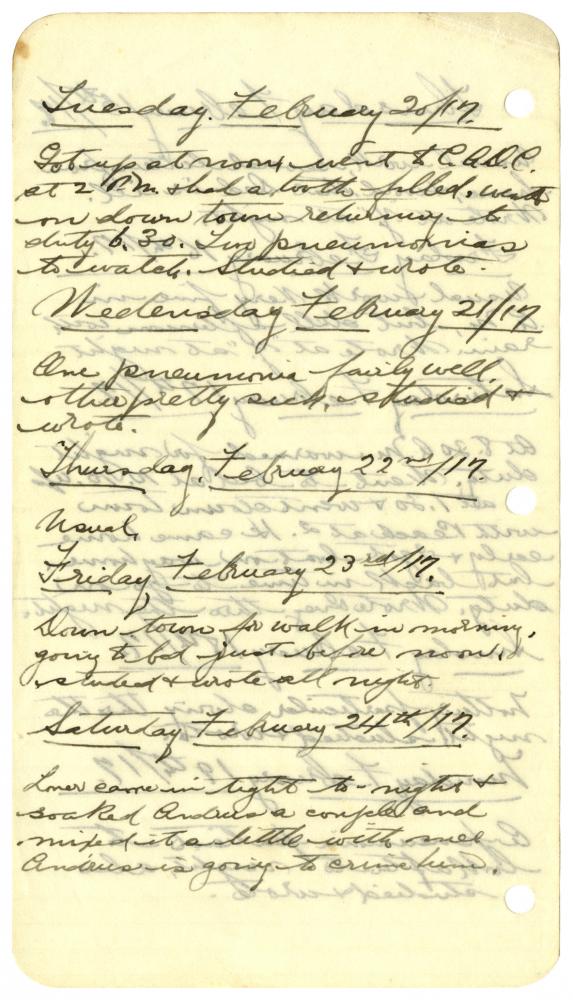 Tuesday. February 20/17.
Got up at noon, went to C.A.D.C.
at 2 P.M. & had a tooth filled, went
on down town returning to
duty 6.30. Two pneumonias
to watch. Studied & wrote.
Wedensday February 21/17
One pneumonia fairly well,
other pretty sick, studied &
wrote.
Thursday. February 22nd/17.
Usual.
Friday, February 23rd/17.
Down town for walk in morning,
going to bed just before noon,
studied & wrote all night.
Saturday February 24th/17.
came in tight to-night &
soaked Andrus a couple and
mixed it a little with me
Andrus is going to crime him.